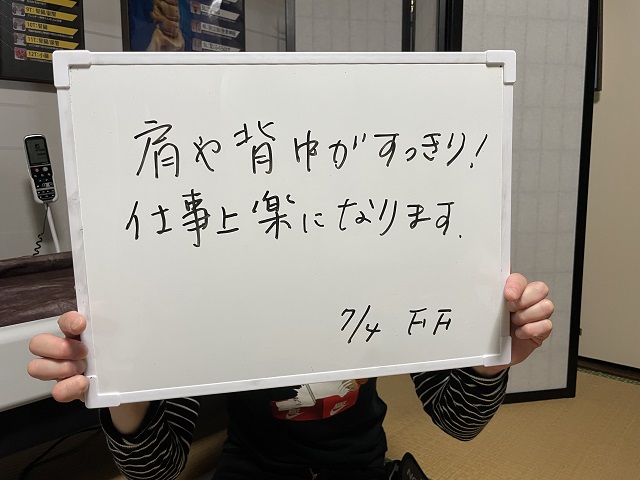 肩や背中がすっきり!
仕事上楽になります.
7/4 F.F